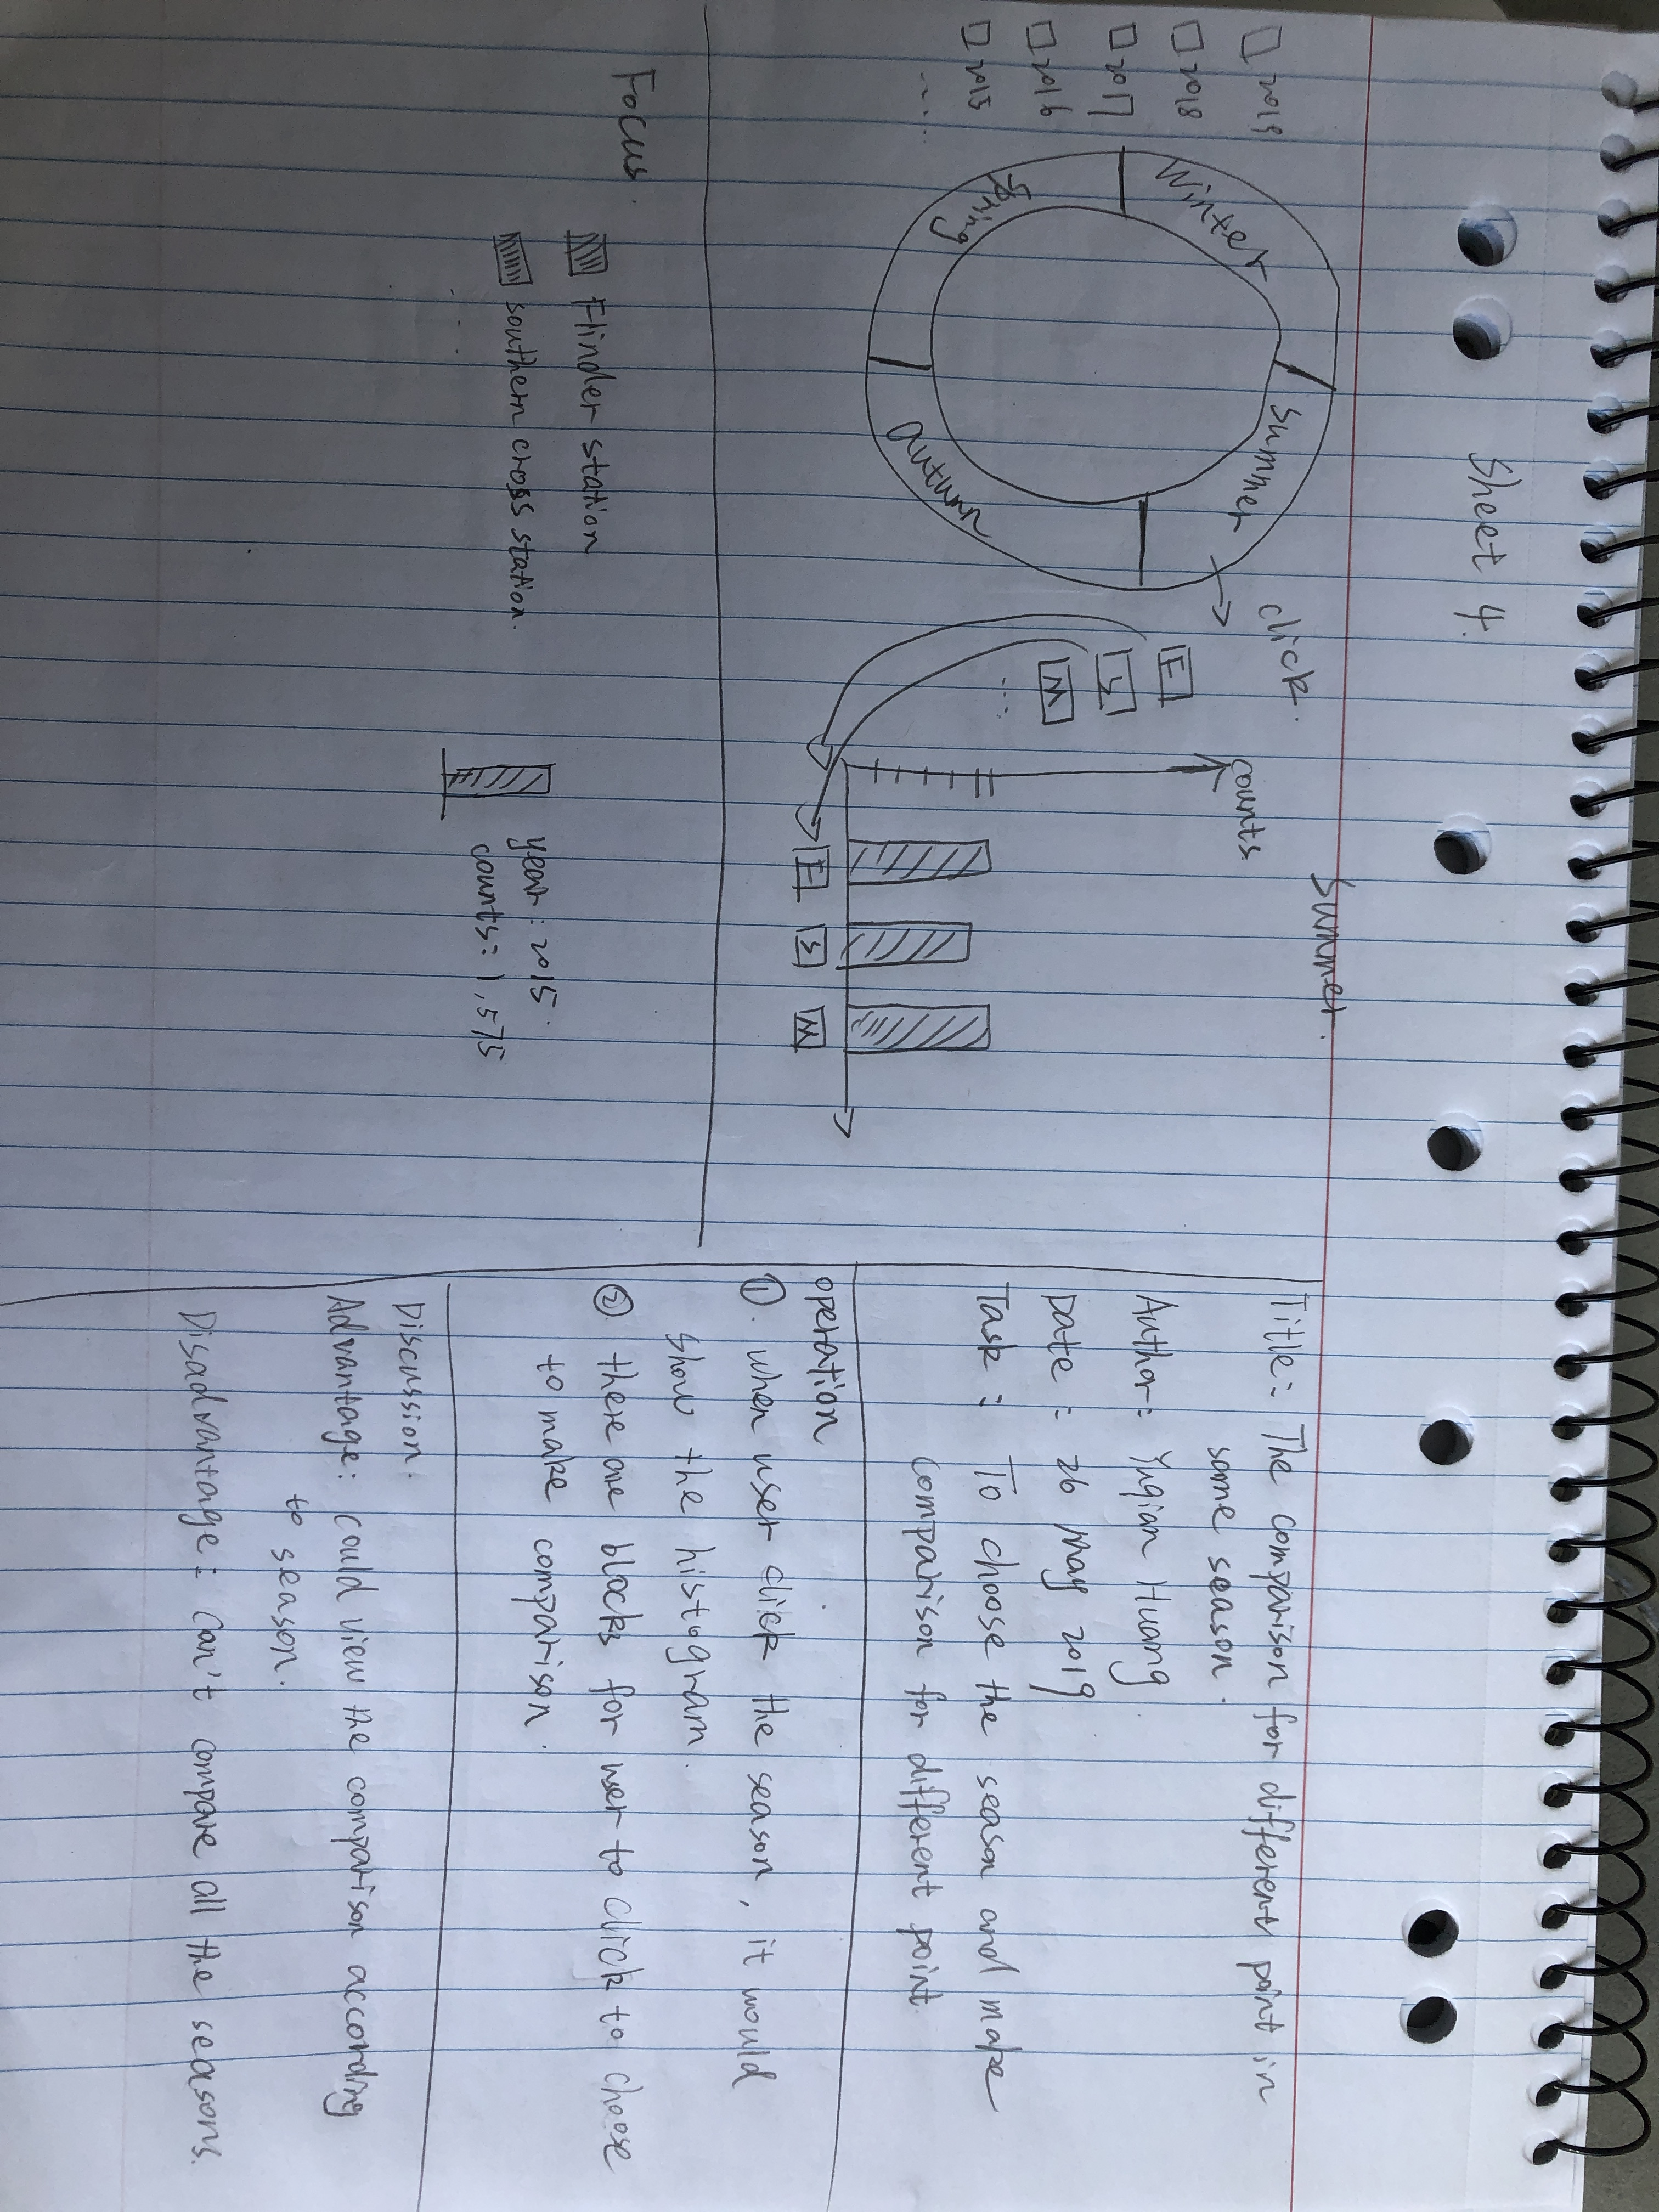 Sheet 4.
□ 2019
□ 2018
□ 2017
□ 2016
□ 2015
.....
Winter
Summer
Spring
autumn
click.
F
S
M
...
Summer.
counts
F
S
M
Focus.
Flinder station
southern cross station.
...
year: 2015.
counts: 1,575
Title: The comparison for different point in
same season.
Author: Yuqian Huang
Date: 26 may 2019
Task: To choose the season and make
comparison for different point.
operation
① when user click the season, it would
show the histogram.
② there are blocks for user to click to choose
to make comparison.
Discussion.
Advantage: could view the comparison according
to season.
Disadvantage: can't compare all the seasons.